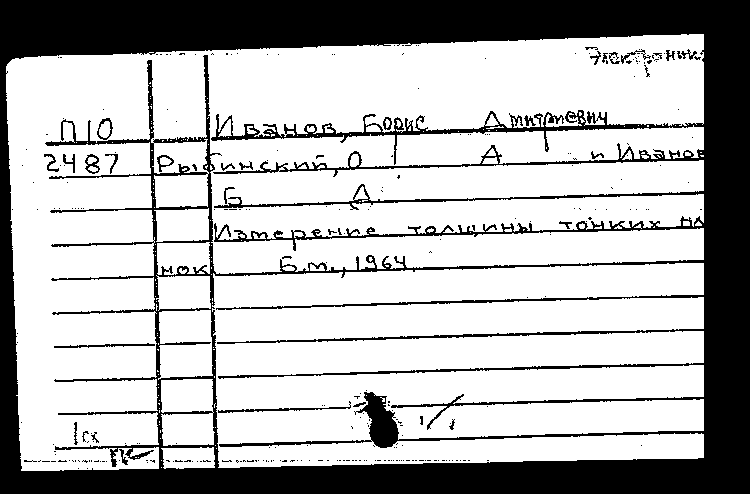 Электроника
П10 Иванов, Борис Дмитриевич
2487 Рыбинский, О А и Иванов
Б Д
Измерение толщины тонких пл
нок Б.м., 1964
1ск